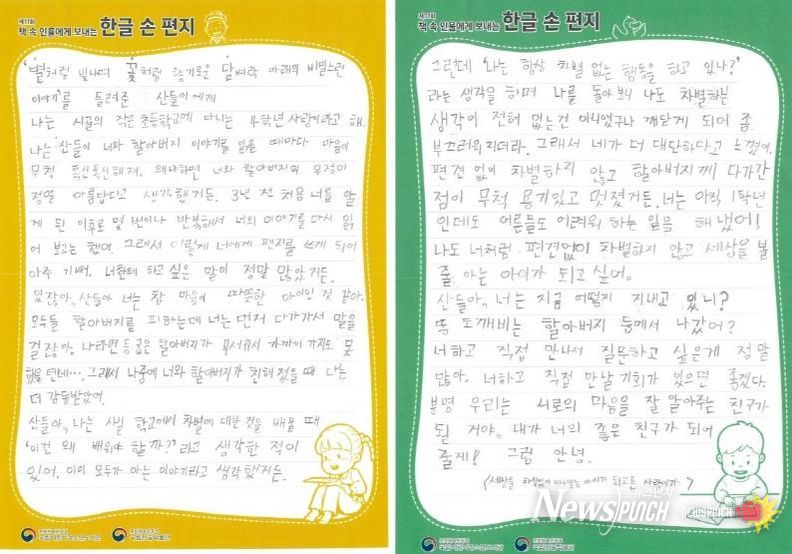 제11회
책 속 인물에게 보내는 한글 손 편지
'별처럼 빛나며 꽃처럼 향기로운 담벼락 아래의 비밀스런
이야기'를 들려준 산들이에게
나는 시골의 작은 초등학교에 다니는 4학년 사랑이라고 해.
나는 산들이 네와 할아버지 이야기를 읽을 때마다 마음이
무척 푹신푹신해져. 왜냐하면 너와 할아버지의 우정이
정말 아름답다고 생각했거든. 3년 전 처음 너를 알
게 된 이후로 몇 번이나 반복해서 너의 이야기를 다시 읽
어 보고는 했어. 그래서 이렇게 너에게 편지를 쓰게 되어
아주 기뻐. 너한테 하고 싶은 말이 정말 많았거든.
있잖아, 산들아 너는 참 마음이 따뜻한 아이인 것 같아.
모두들 할아버지를 피하는데 너는 먼저 다가가서 말을
걸잖아. 나라면 등 굽은 할아버지가 무서워서 가까이 가지도 못
했을텐데…. 그래서 나중에 너와 할아버지가 친해졌을 때 나는
더 감동받았어.
산들아, 나는 사실 학교에서 차별에 대한 것을 배울 때
'이건 왜 배워야 할까?'라고 생각한 적이
있어. 이미 모두가 아는 이야기라고 생각했거든.
제11회
책 속 인물에게 보내는 한글 손 편지
그런데 '나는 항상 차별 없는 행동을 하고 있나?'
라는 생각을 하며 나를 돌아보니 나도 차별하는
생각이 전혀 없는건 아니었구나 깨닫게 되어 좀
부끄러워지더라. 그래서 네가 더 대단하다고 느꼈어.
편견 없이 차별하지 않고 할아버지께 다가간
점이 무척 용기있고 멋졌거든. 너는 아직 1학년
인데도 어른들도 어려워 하는 일을 해냈어!
나도 너처럼 편견없이 차별하지 않고 세상을 볼
줄 아는 아이가 되고 싶어.
산들아, 너는 지금 어떻게 지내고 있니?
똥 도깨비는 할아버지 등에서 나갔어?
너하고 직접 만나서 질문하고 싶은게 정말
많아. 너하고 직접 만날 기회가 있으면 좋겠다.
분명 우리는 서로의 마음을 잘 알아주는 친구가
될 거야. 내가 너의 좋은 친구가 되어
줄게! 그럼 안녕.
뉴스펀치
NewsPUNCH